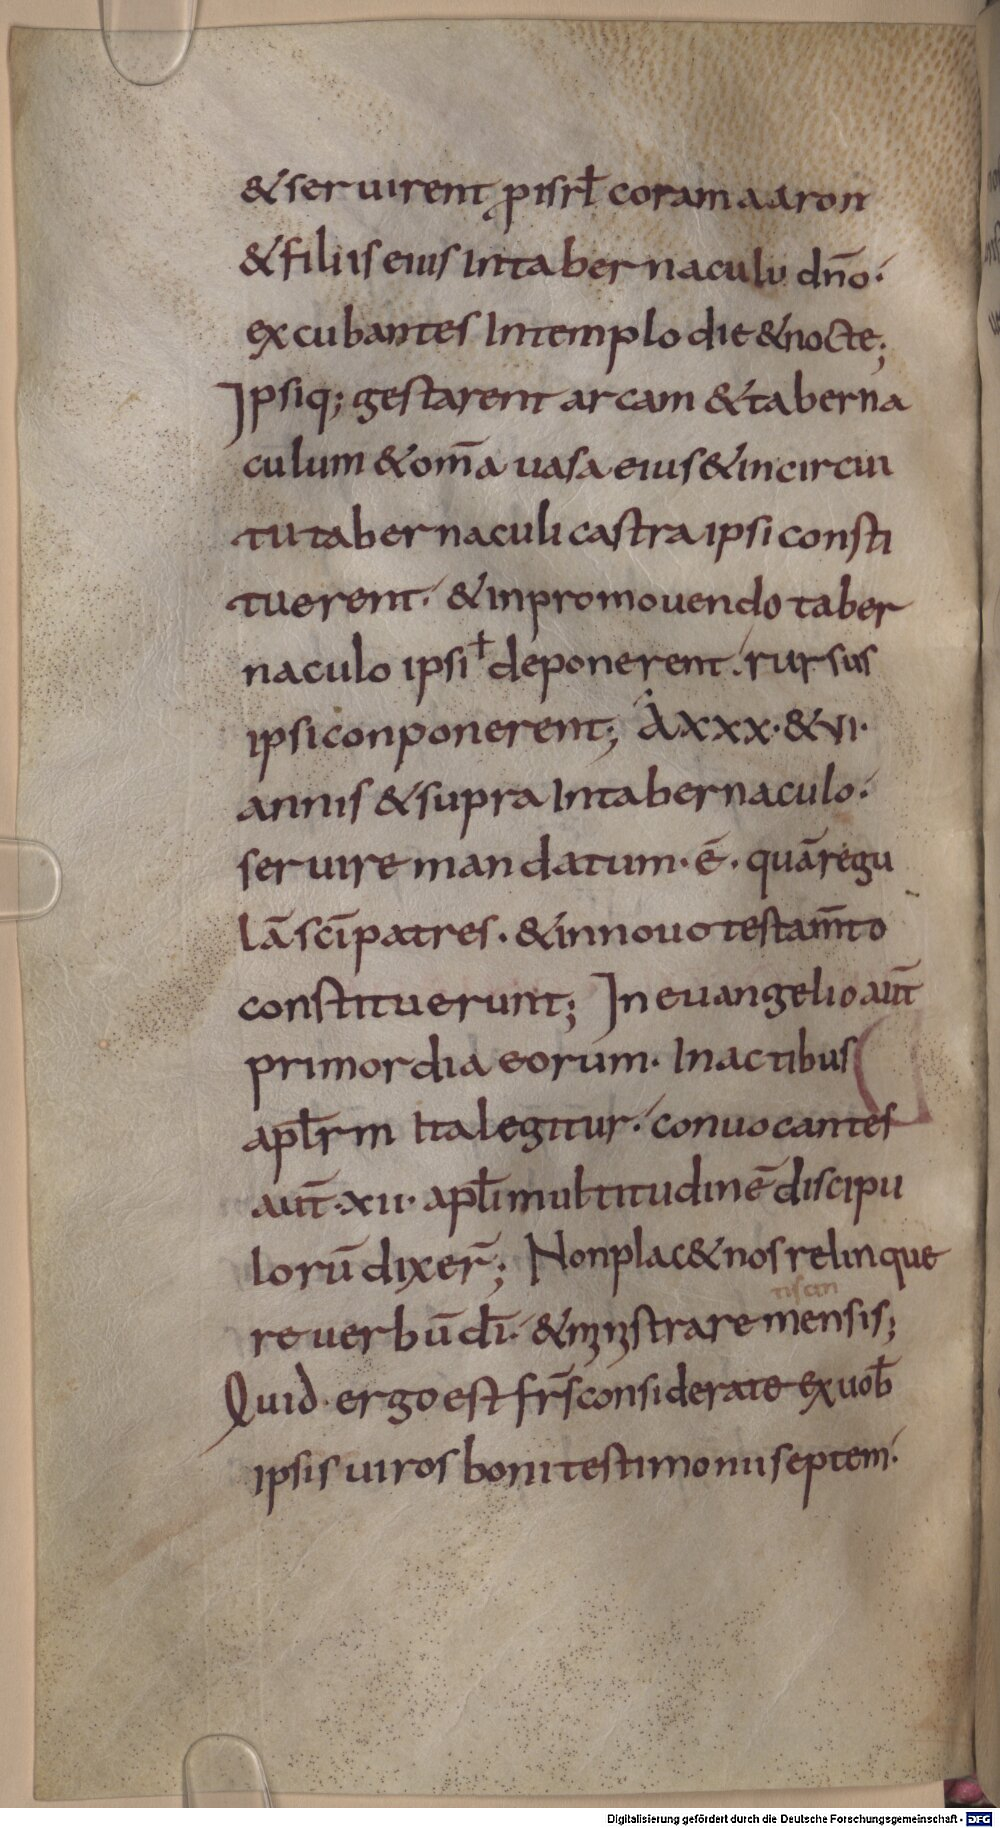 & seruirent ꝓ isrł coram aaron
& filiis eius In tabernaculu dn̄o·
excubantes In templo die & nocte;
Ipsiq; gestarent arcam & taberna
culum & om̄a uasa eius & in circui
tu tabernaculi castra ipsi consti
tuerent· & in promouendo taber
naculo ipsi deponerent· rursus
ipsi conponerent; A xxx· & vi·
annis & supra In tabernaculo·
seruire mandatum· ē· quā regu
lā sc̄i patres· & in nouo testam̄to
constituerunt; In euangelio aut̄
primordia eorum· In actibus
apłrm Ita legitur· conuocantes
aut̄ ·xii· apłi multitudinē discipu
lorū dixer̄; Non plac& nos relinque
re uerbū dī· & mnstrare mensis;
Quid ergo est fr̄s considerate ex uob̄
ipsis uiros boni testimonii septem·
Digitalisierung gefördert durch die Deutsche Forschungsgemeinschaft - DFG